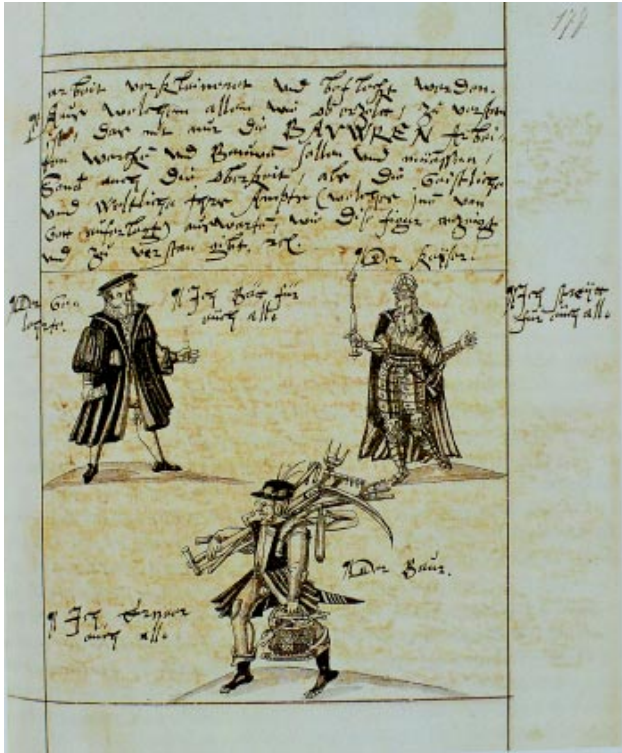 178
arbeit verkleineret und befleckt werden.
Auß welchem allem wie oberzelt, zu verstan
ist, das nit nur die BAVWREN Arbei,
ten wercke und Bauwe sollen und müessen,
Sond auch die oberkeit, als die Geistliche
und weltliche Ihre Ämpter (welches jne von
Gott auferlegt) außwarte, wie dise figur anzeigt
und zu verstan gibt. rc.
Der Kayser.
Der Ge,
lehrte.
Ich Bätt für
eüch alle
Ich streytt
für eüch alle
Der Baur.
Ich Erneer
eüch alle